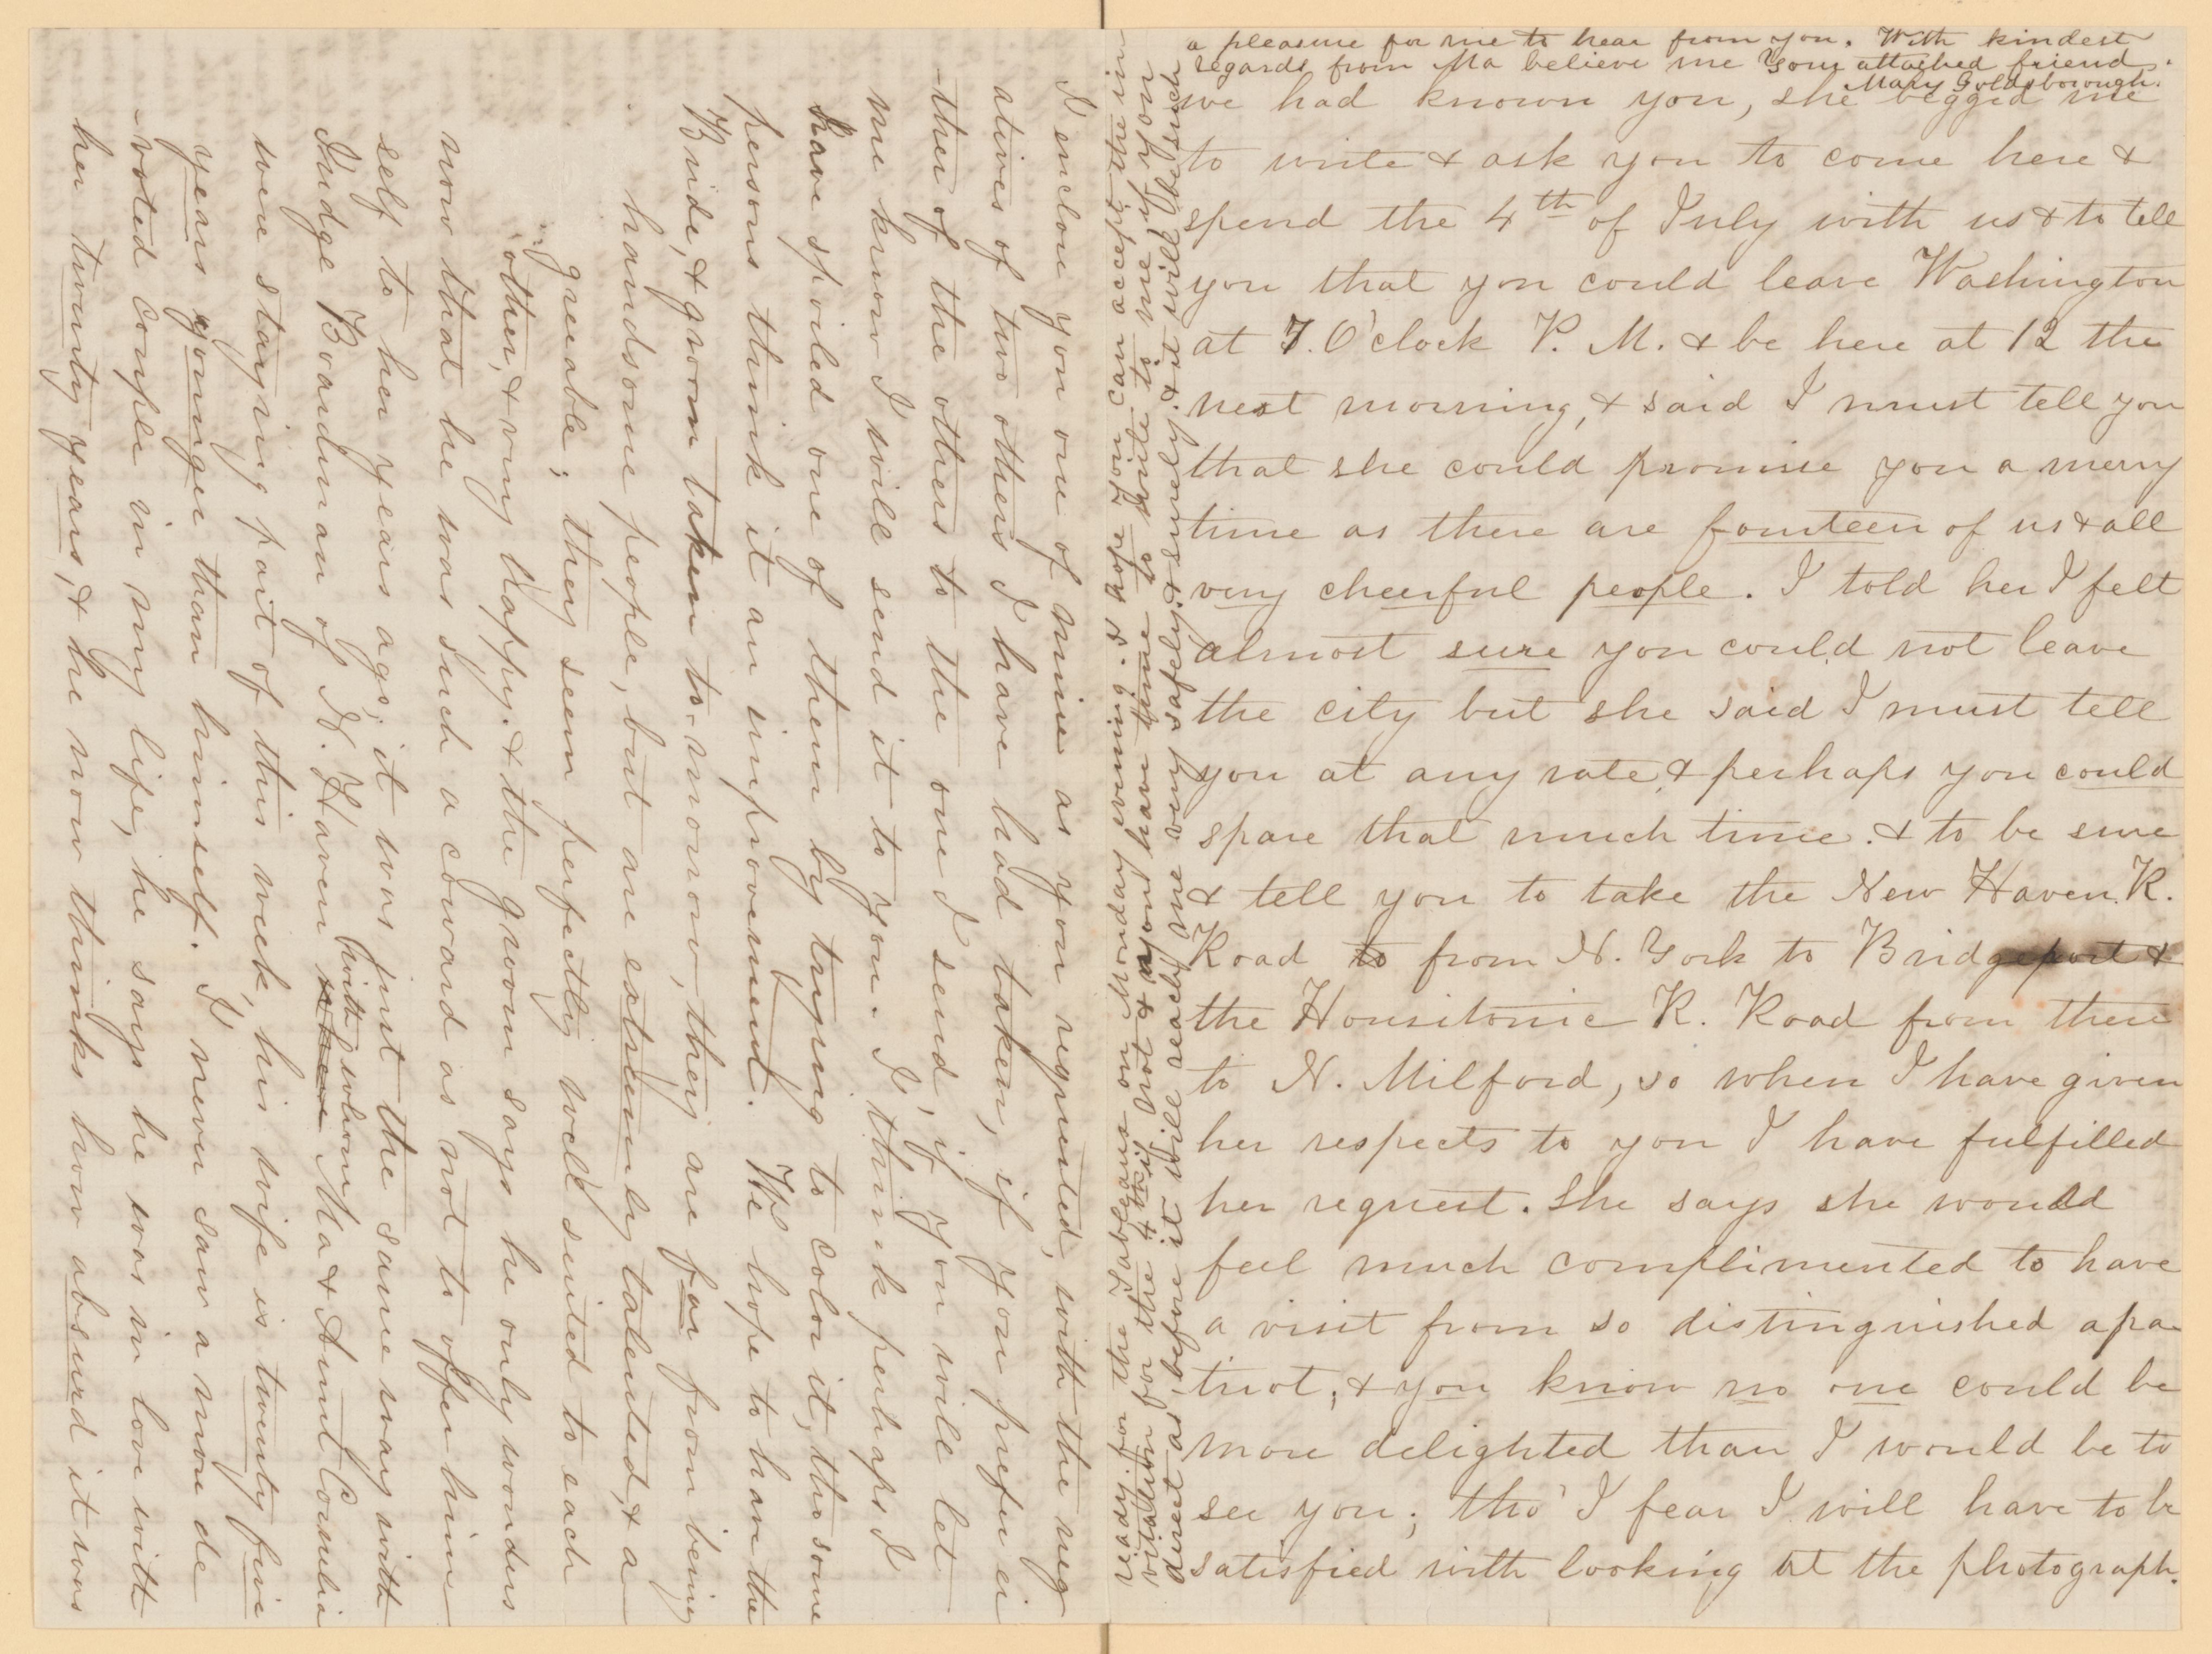 we had known you, she begged me
to write & ask you to come here &
spend the 4th of July with us & to tell
you that you could leave Washington
at 7. O'clock P. M. & be here at 12 the
next morning, & said I must tell you
that she could promise you a merry
time as there are fourteen of us & all
very cheerful people. I told her I felt
almost sure you could not leave
the city but she said I must tell
you at any rate, & perhaps you could
spare that much time. & to be sure
& tell you to take the New Haven R.
Road to from N. York to Bridgeport &
the Housitonic R. Road from there
to N. Milford, so when I have given
her respects to you I have fulfilled
her request. She says she would
feel much complimented to have
a visit from so distinguished a pa-
triot, & you know no one could be
more delighted than I would be to
see you; tho' I fear I will have to be
satisfied with looking at the photograph.
I enclose you one of mine as you requested, with the neg
atives of two others I have had taken, if you prefer ei
-ther of the others to the one I send, if you will let
me know I will send it to you. I think perhaps I
have spoiled one of them by trying to color it, tho some
persons think it an improvement. We hope to have the
Bride, & groom taken to-morrow, they are far from being
handsome people, but are extremely talented, & a-
greeable; they seem perfectly well suited to each
other, & very happy. & the groom says he only wonders
now that he was such a coward as not to offer him-
self to her years ago, it was just the same way with
Judge Boardman of N. Haven where with whom Ma & Aunt Cornelia
were staying part of this week, his wife is twenty five
years younger than himself. I never saw a more de
-voted couple in my life, he says he was in love with
her twenty years, & he now thinks how absurd it was
vissir for the Tableaux on Monday evening. I hope you can accept the in
vitation for the 4th if not & you have time to write to me if your
direct as before it will reach me very safely, & surely. & it will be such
a pleasure for me to hear from you. With kindest
regards from Ma believe me Your attached friend.
Mary Goldsborough.